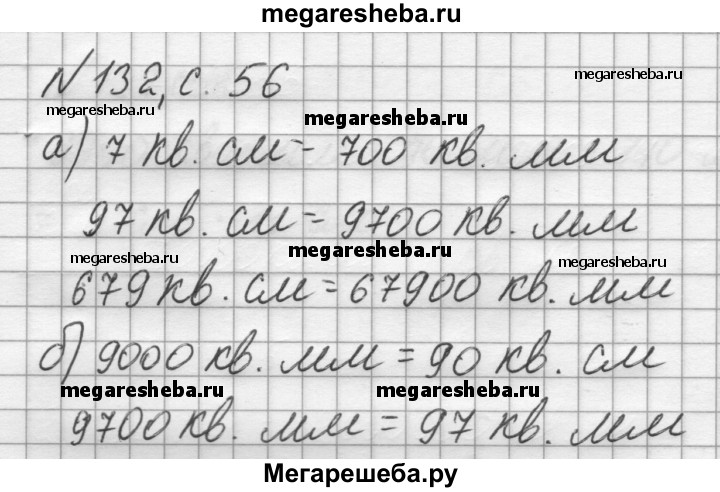 megaresheba.ru
№ 132, с. 56
megaresheba.ru
megaresheba.ru
megaresheba.ru
а) 7 кв. см = 700 кв. мм
97 кв. см = 9700 кв. мм
megaresheba.ru
megaresheba.ru
megaresheba.ru
679 кв. см = 67900 кв. мм
б) 9000 кв. мм = 90 кв. см
megaresheba.ru
megaresheba.ru
9700 кв. мм = 97 кв. мм
Мегарешеба.ру